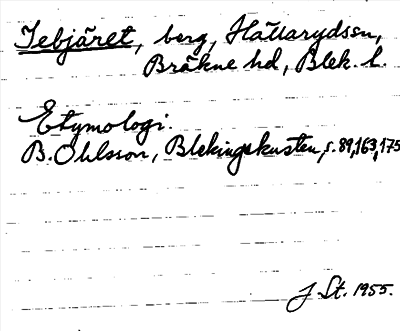 Tebjäret, berg, Hällarydssn,
Bräkne hd, Blek. l.
Etymologi.
B. Ohlsson, Blekingekusten, s. 89, 163, 175
J St. 1955.